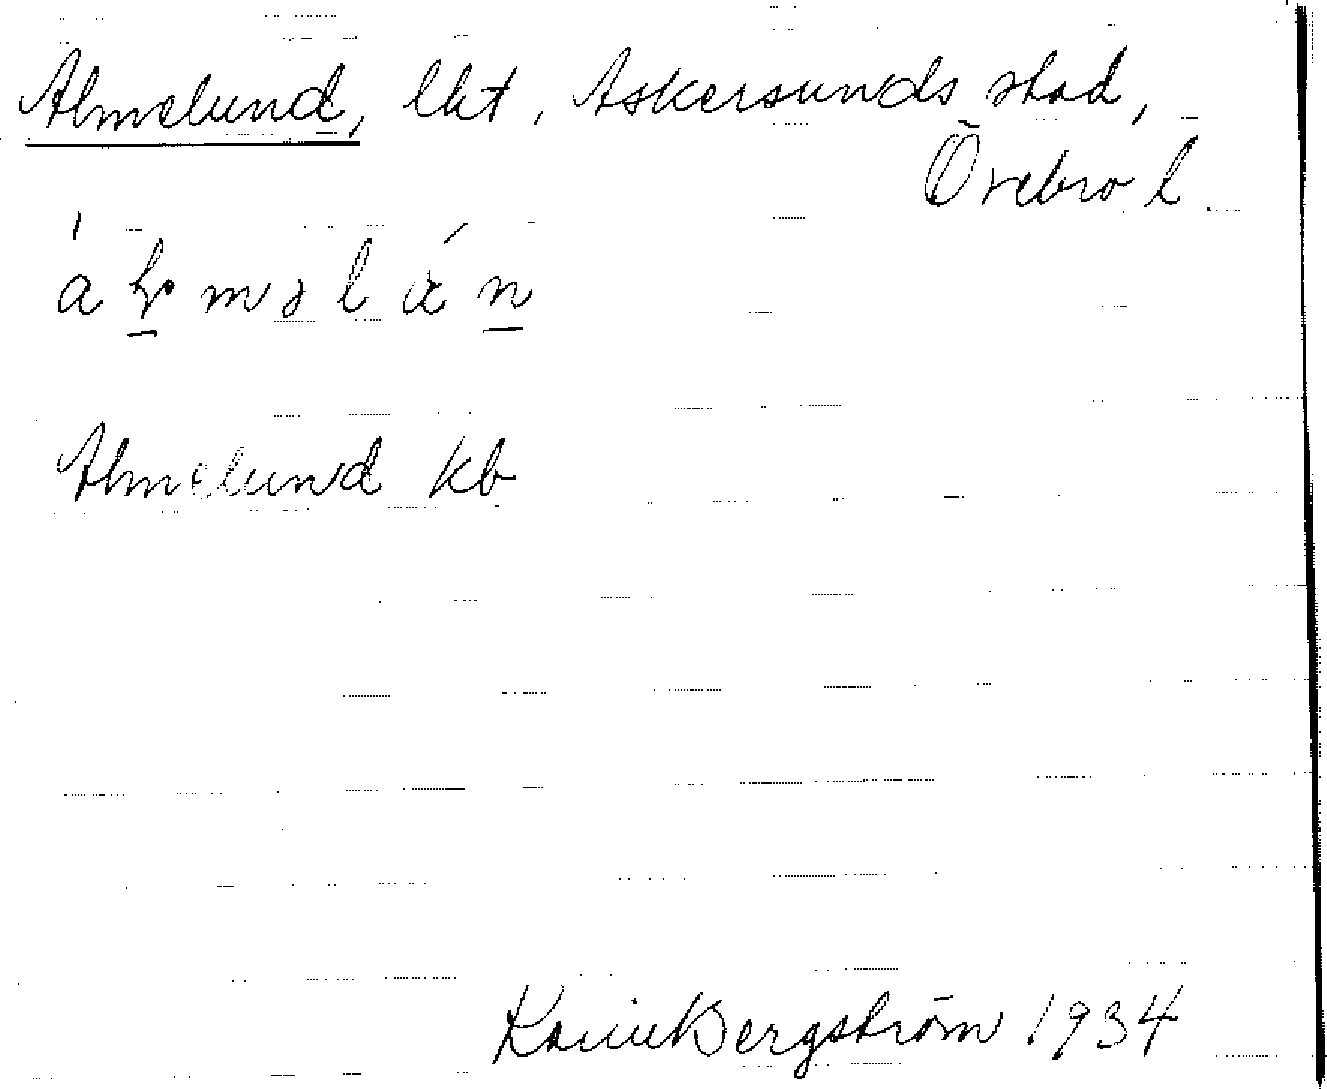 Almelund, lht, Askersunds stad,
Örebro l.
Almelund kb
Karin Bergström 1934